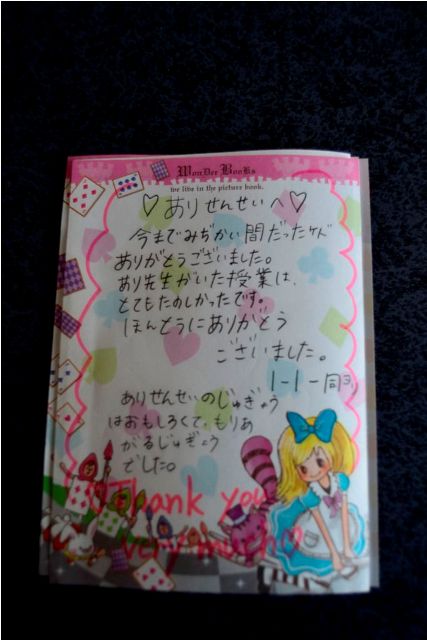 WonDer BooKs
we live in the picture book.
♡ありせんせいへ♡
今までみぢかい間だったケド
ありがとうございました。
あり先生がいた授業は、
とてもたのしかったです。
ほんとうにありがとう
ございました。
1-1一同ヨリ
ありせんせいのじゅぎょう
はおもしろくて、もりあ
がるじゅぎょう
でした。
Thank you
very much♡